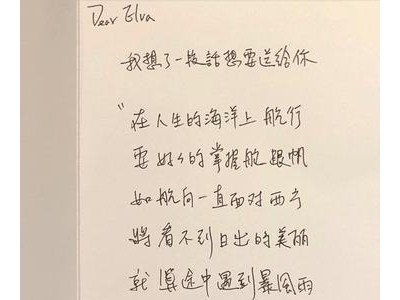 Dear Elva
我想了一段話想要送給你
"在人生的海洋上航行
要好好的掌握舵跟帆
如航向一直面对西方
將看不到日出的美丽
就算途中遇到暴風雨